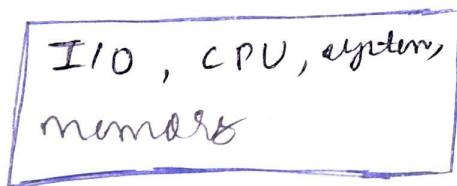 I/O, CPU, system,
memory